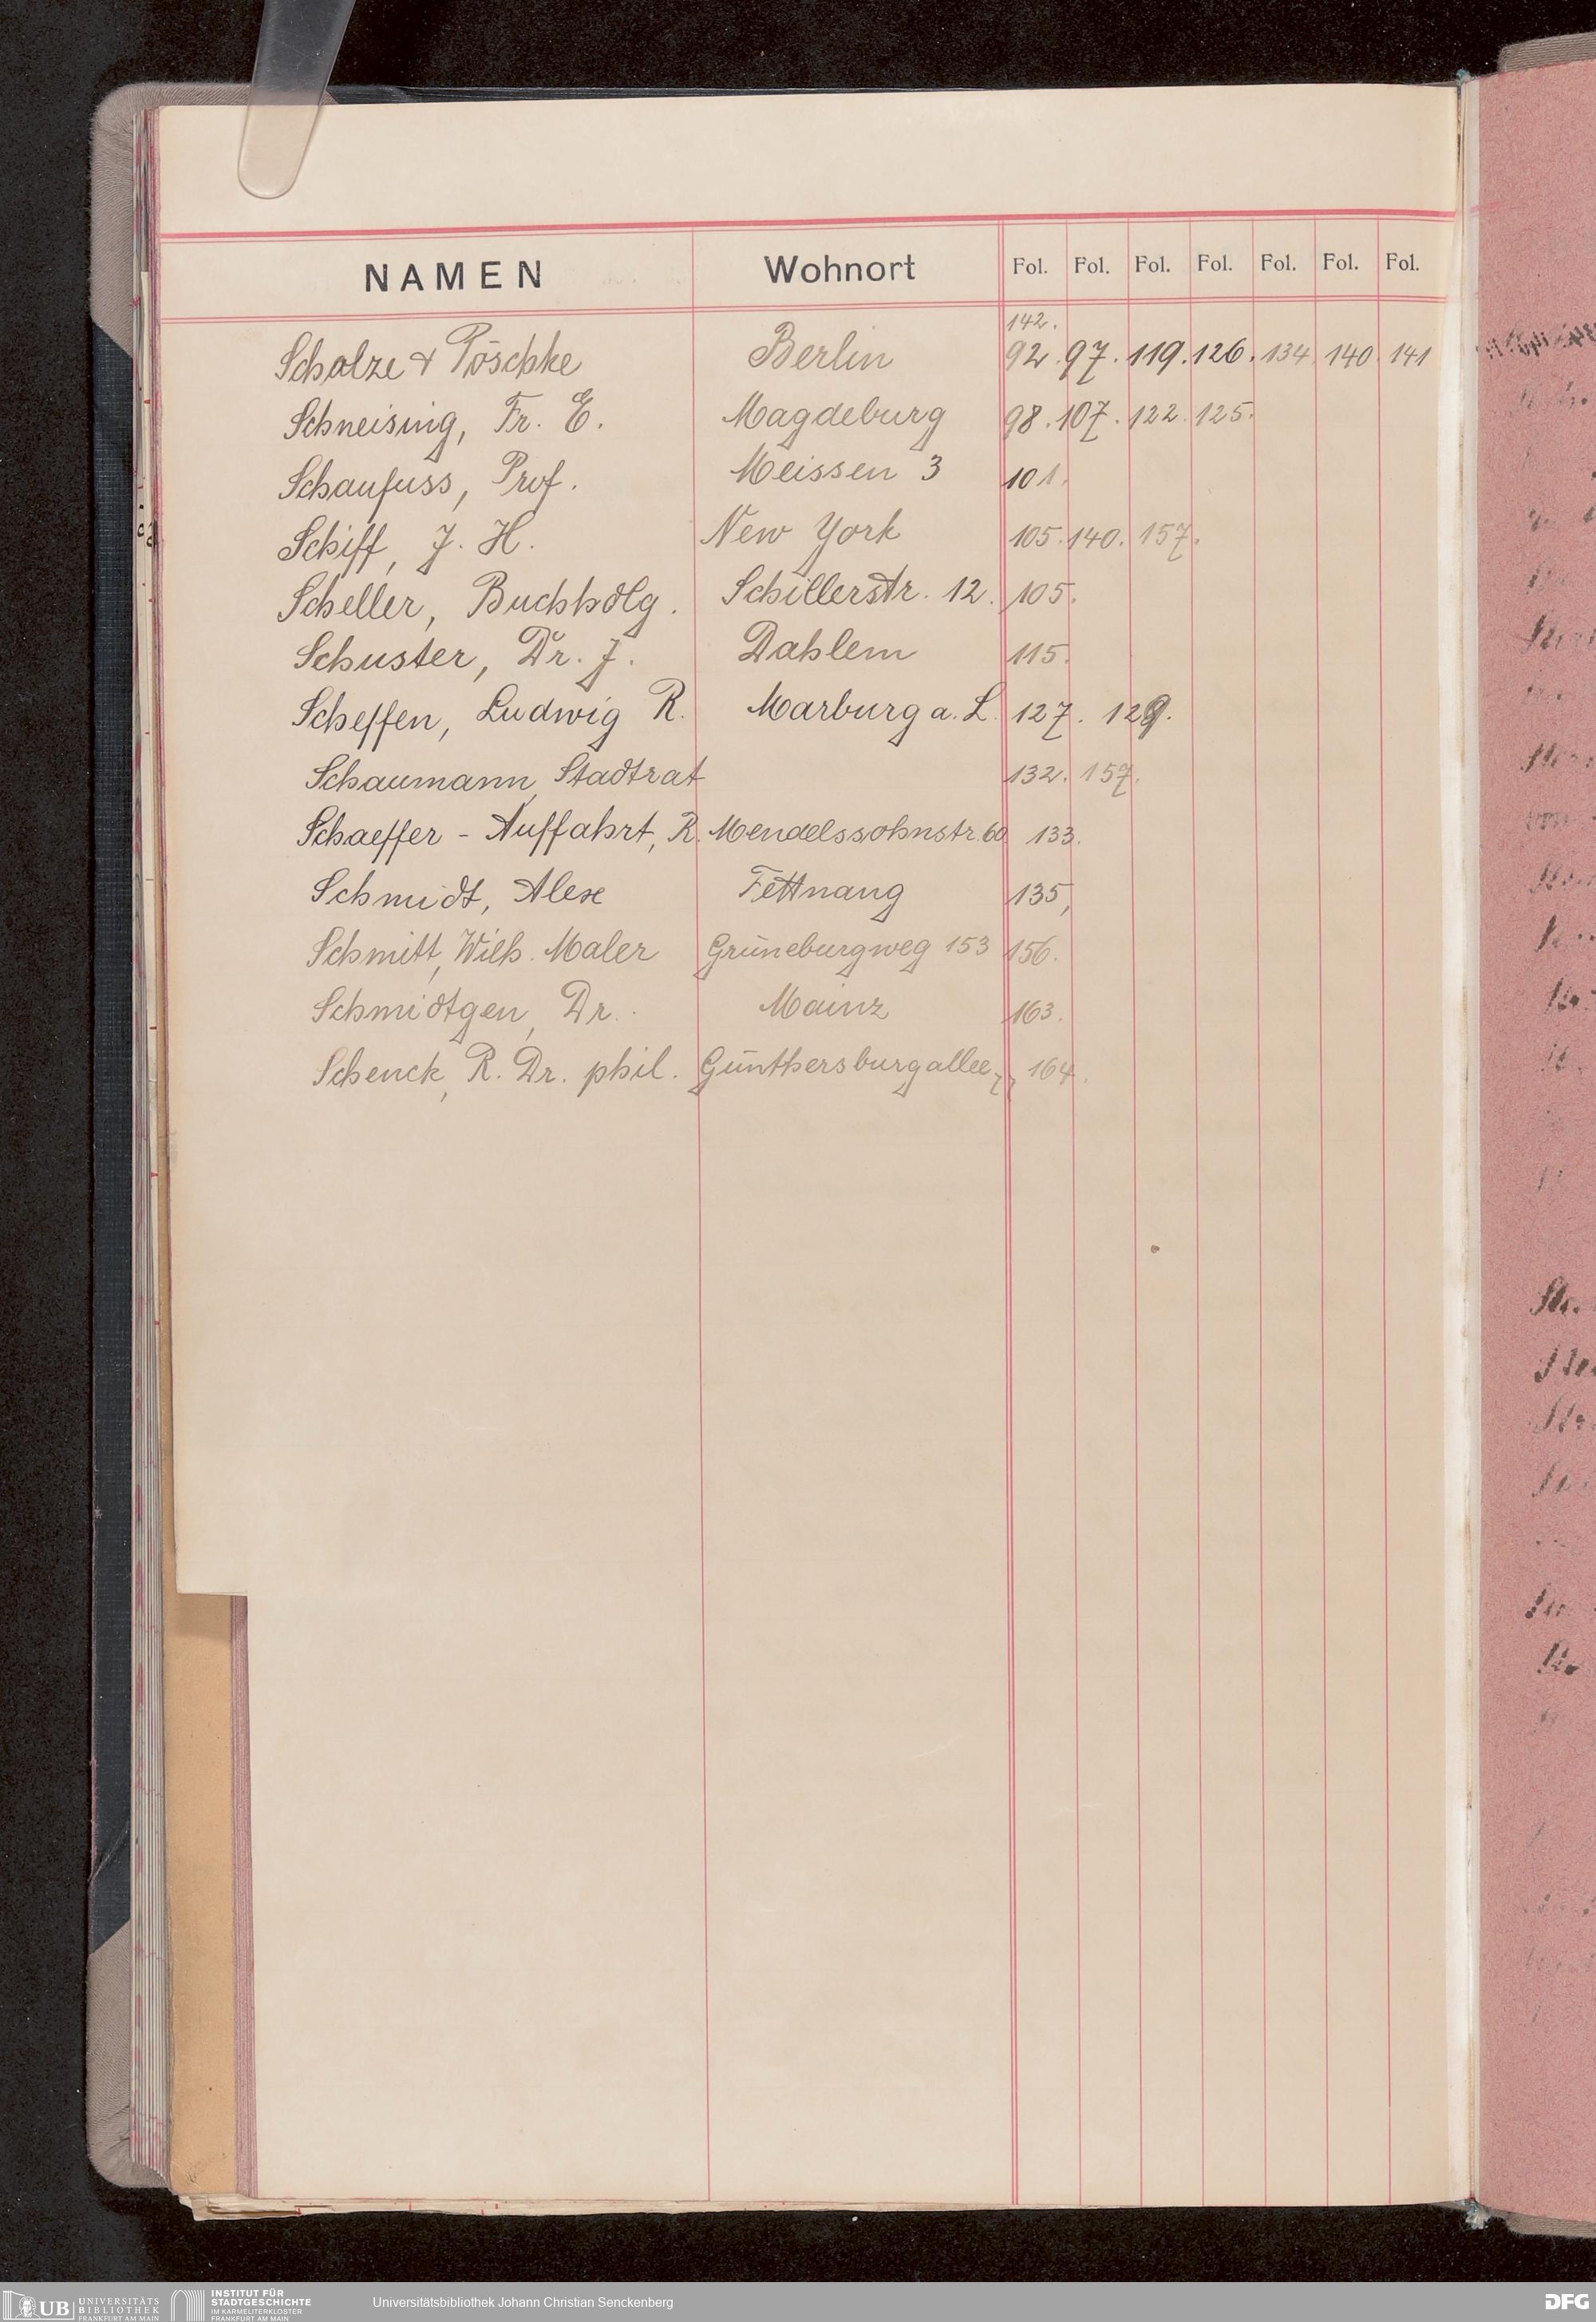 NAMEN Wohnort Fol. Fol. Fol. Fol. Fol. Fol. Fol.
142.
Scholze & Pöschke Berlin 92. 97. 119. 126. 134. 140. 141
Schneising, Fr. E. Magdeburg 98. 107. 122. 125.
Schaufuss, Prof. Meissen 3 101.
Schiff, J. H. New York 105. 140. 157.
Scheller, Buchhdlg. Schillerstr. 12. 105.
Schuster, Dr. J. Dahlem 115.
Scheffen, Ludwig R. Marburg a. L. 127. 129.
Schaumann, Stadtrat 132. 157.
Schaeffer - Auffahrt, R. Mendelssohnstr. 60 133.
Schmidt, Alex Tettnang 135,
Schmitt, Wilh. Maler Grüneburgweg 153 156.
Schmidtgen, Dr. Mainz 163.
Schenck, R. Dr. phil. Günthersburgallee 77 164.
UB UNIVERSITÄTS BIBLIOTHEK FRANKFURT AM MAIN
INSTITUT FÜR STADTGESCHICHTE IM KARMELITERKLOSTER FRANKFURT AM MAIN
Universitätsbibliothek Johann Christian Senckenberg
DFG